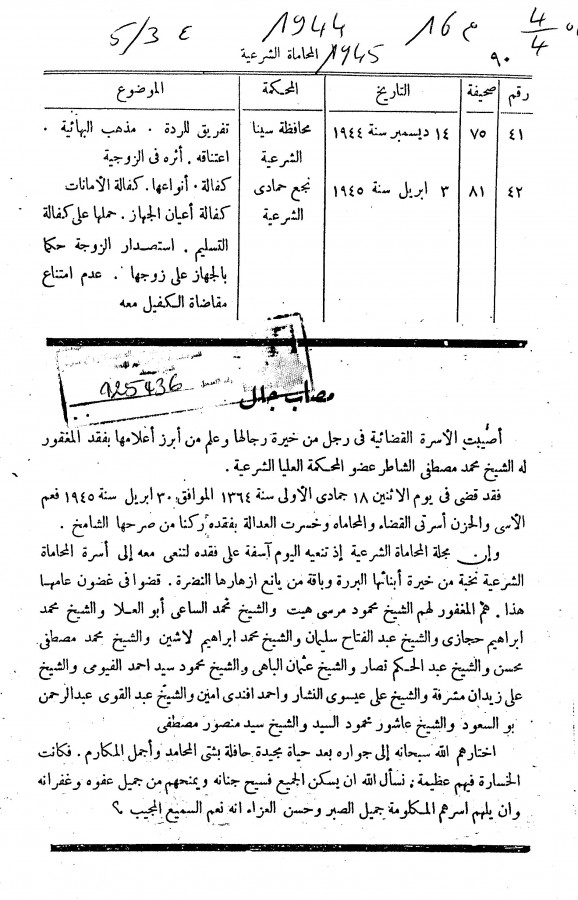 5/3 ع 1944 م 16 4/4
1945/ المحاماة الشرعية ٩٠
رقم صحيفة التاريخ المحكمة الموضوع
٤١ ٧٥ ١٤ ديسمبر سنة ١٩٤٤ محافظة سينا تفريق للردة . مذهب البهائية .
الشرعية اعتناقه . أثره فى الزوجية
٤٢ ٨١ ٣ ابريل سنة ١٩٤٥ نجع حمادى كفالة . أنواعها . كفالة الأمانات
الشرعية كفالة أعيان الجهاز . حملها على كفالة
التسليم . استصدار الزوجة حكما
بالجهاز على زوجها . عدم امتناع
مقاضاة الكفيل معه
925436
مصاب جلل
أصيبت الأسرة القضائية فى رجل من خيرة رجالها وعلم من أبرز أعلامها بفقد المغفور
له الشيخ محمد مصطفى الشاطر عضو المحكمة العليا الشرعية .
فقد قضى فى يوم الاثنين ١٨ جمادى الأولى سنة ١٣٦٤ الموافق ٣٠ ابريل سنة ١٩٤٥ فعم
الأسى والحزن أسرتى القضاء والمحاماه وخسرت العدالة بفقده ركنا من صرحها الشامخ .
وإن مجلة المحاماة الشرعية إذ تنعيه اليوم آسفة على فقده لتنعى معه إلى أسرة المحاماة
الشرعية نخبة من خيرة أبنائها البررة وباقة من يانع ازهارها النضرة . قضوا فى غضون عامها
هذا . هم المغفور لهم الشيخ محمود مرسى هيت والشيخ محمد الساعى أبو العلا والشيخ محمد
ابراهيم حجازى والشيخ عبد الفتاح سليمان والشيخ محمد ابراهيم لاشين والشيخ محمد مصطفى
محسن والشيخ عبد الحكم نصار والشيخ عثمان الباهى والشيخ محمود سيد احمد الفيومى والشيخ
على زيدان مشرفة والشيخ على عيسوى النشار واحمد افندى امين والشيخ عبد القوى عبدالرحمن
بو السعود والشيخ عاشور محمود السيد والشيخ سيد منصور مصطفى
اختارهم الله سبحانه إلى جواره بعد حياة مجيدة حافلة بشتى المحامد وأجمل المكارم . فكانت
الخسارة فيهم عظيمة . نسأل الله ان يسكن الجميع فسيح جنانه ويمنحهم من جميل عفوه وغفرانه
وان يلهم اسرهم المكلومة جميل الصبر وحسن العزاء انه نعم السميع المجيب . ؟